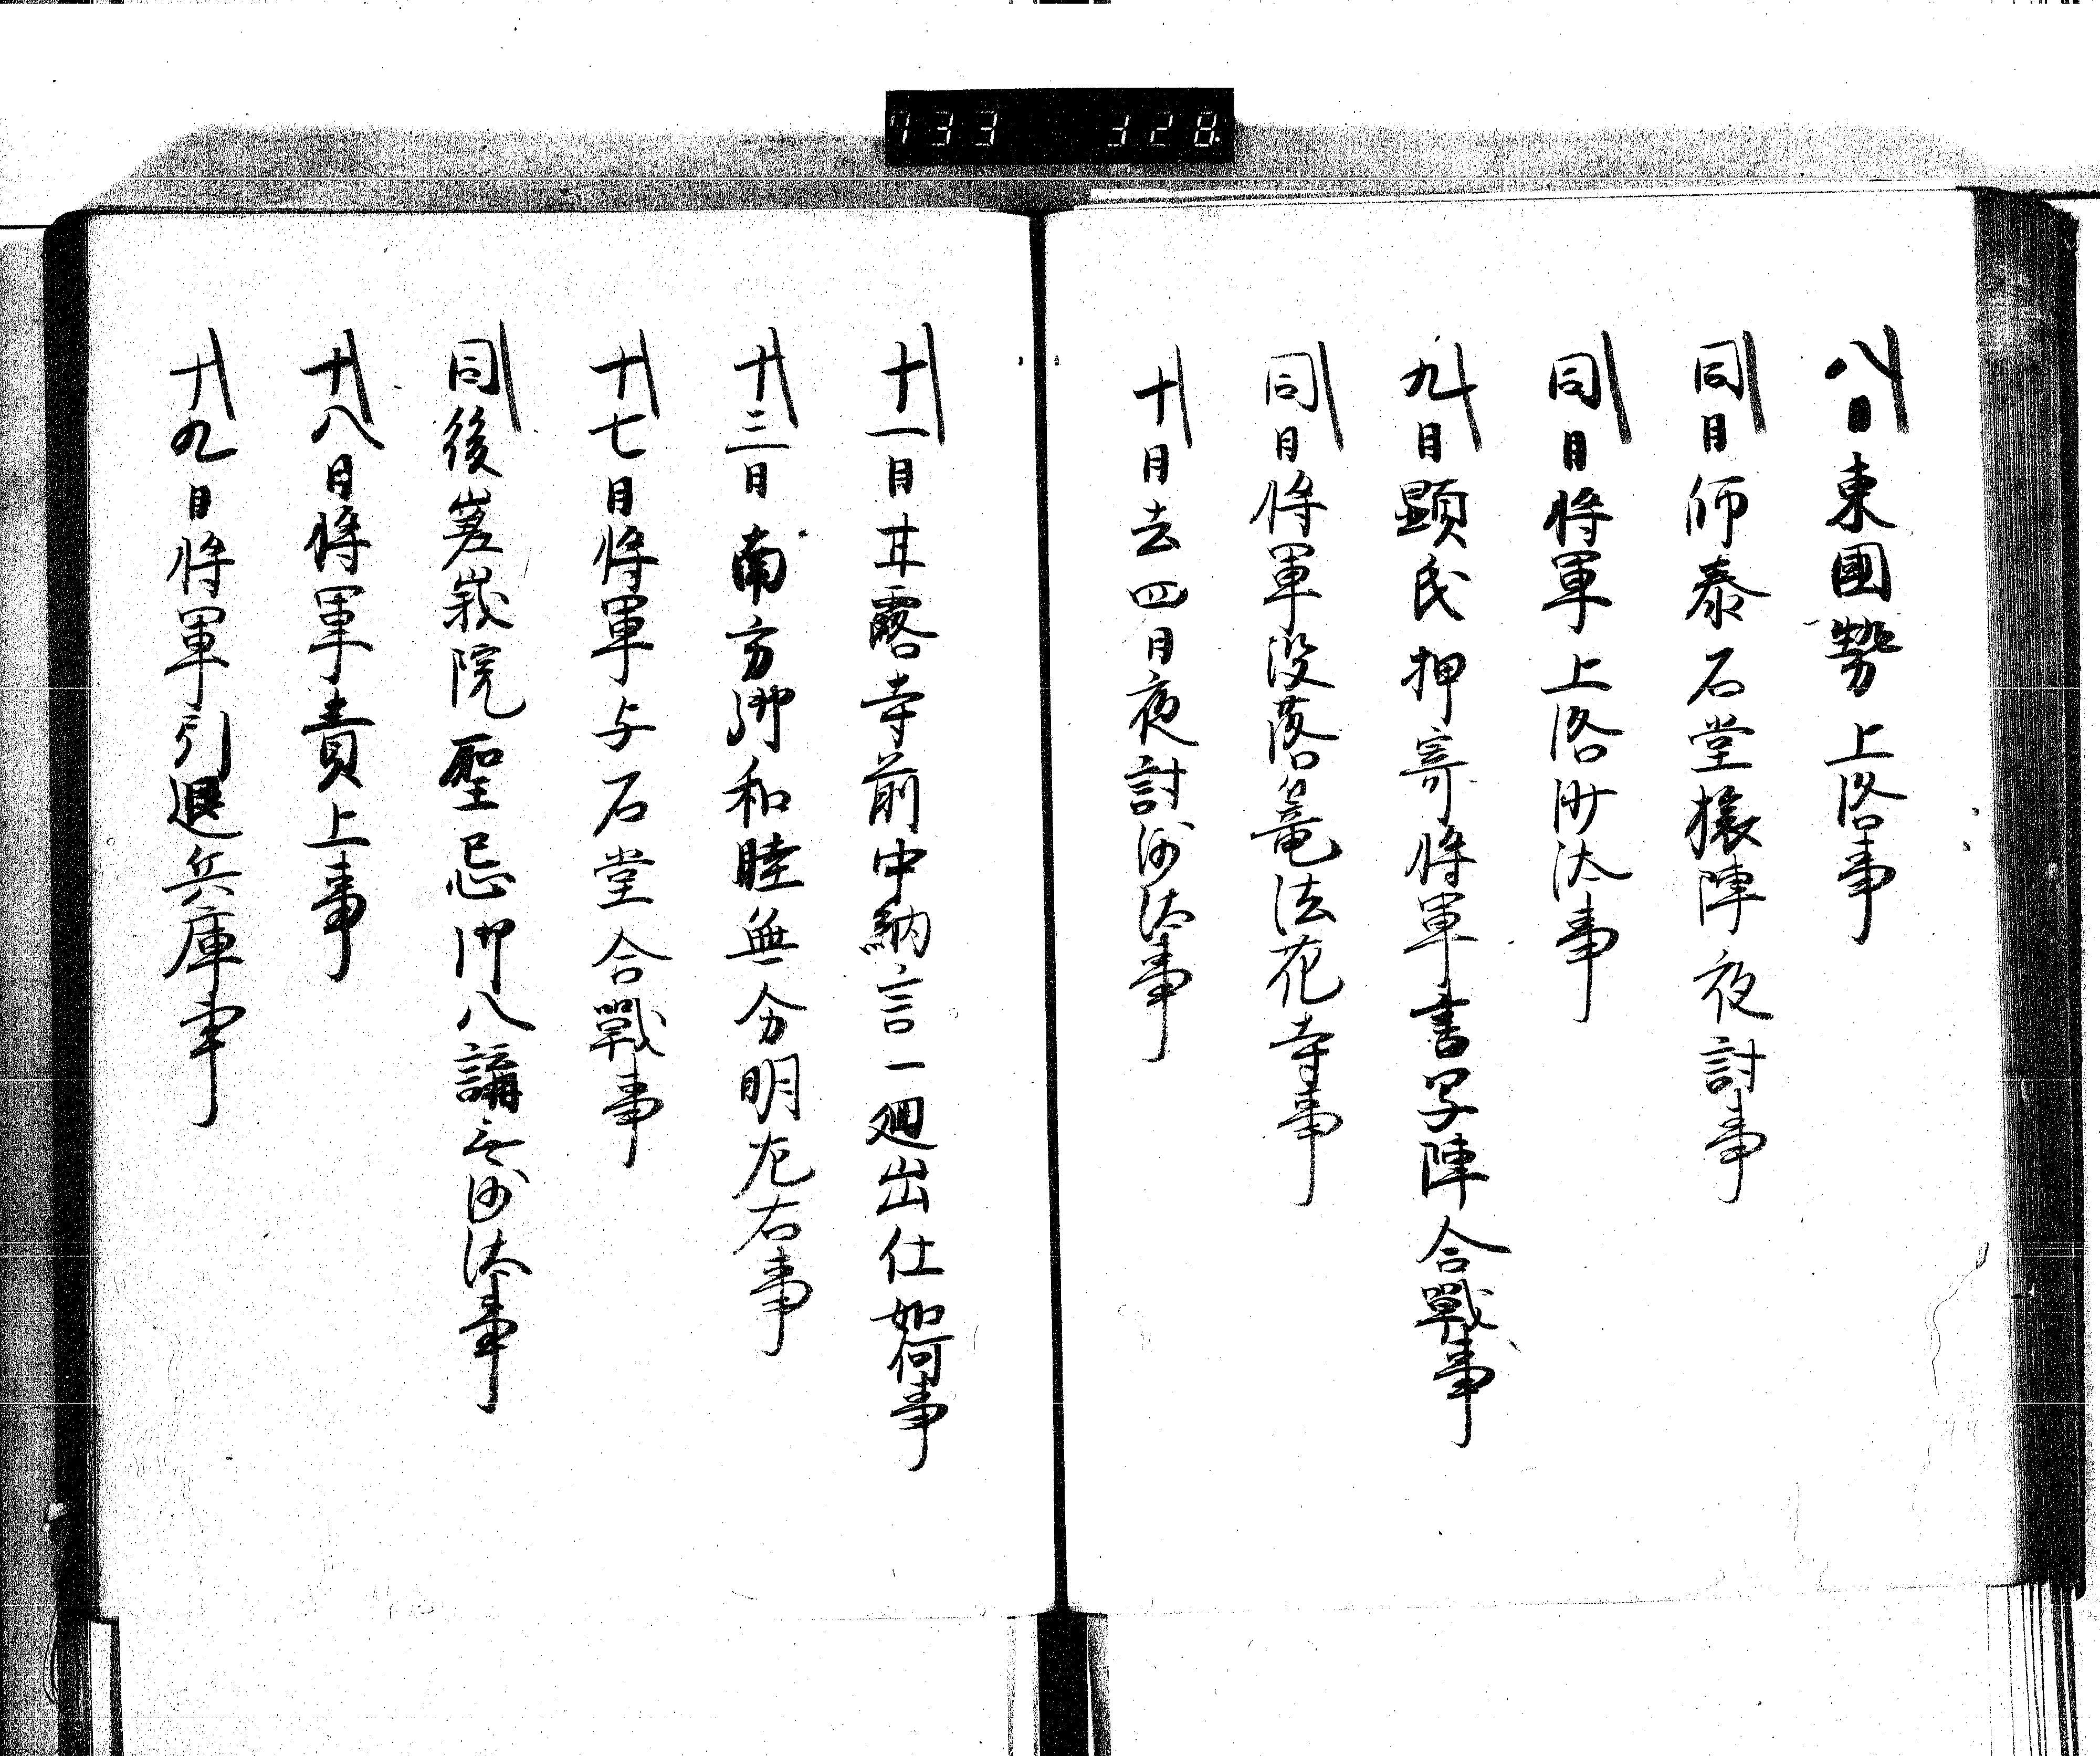 733 328
八日東國勢上洛事
同日師泰石堂攘陣夜討事
同日将軍上洛沙汰事
九日顕氏押寄将軍書写陣合戰事
同日将軍没落篭法花寺事
十日去四日夜討沙汰事
十一日甘露寺前中納言一廻出仕如何事
十三日南方御和睦無分明左右事
十七日将軍与石堂合戰事
同後嵯峩院聖忌御八講無沙汰事
十八日将軍責上事
十九日将軍引退兵庫事